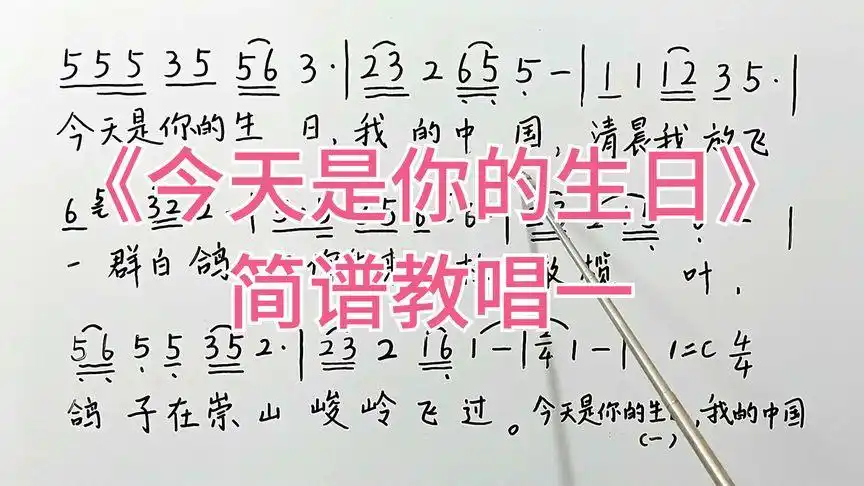 5 5 5 3 5 5 6 3 · | 2 3 2 6 5 5 - | 1 1 1 2 3 5 · |
今天是你的生 日，我 的中 国，清晨我放飞
《今天是你的生日》
6 5 3 2 2 |
一 群白 鸽
叶，
简谱教唱一
5 6 5 5 3 5 2 · | 2 3 2 1 6 1 - | 2/4 1 - | 1=C 4/4
鸽 子在崇 山 峻岭飞 过。今天是你的生，我的中国
（一）